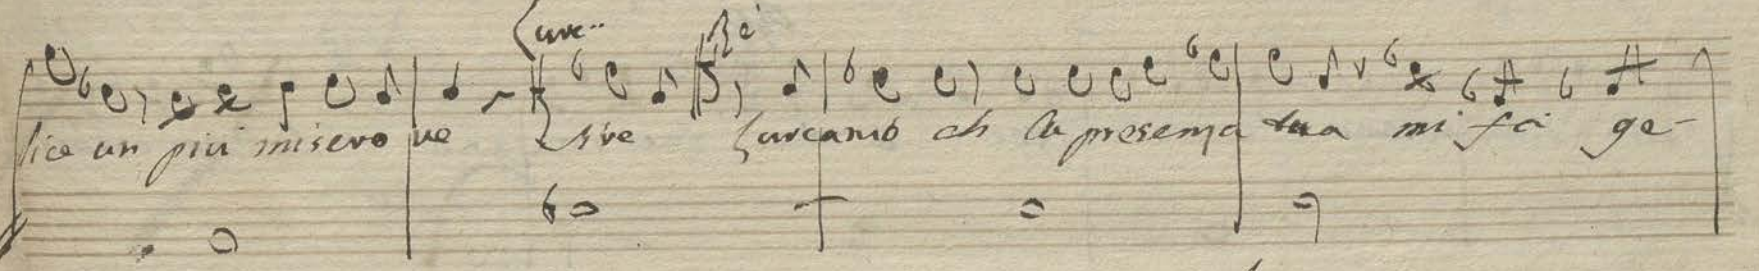 Lure.. Rè
lice un più misero re Sire Lurcanio ah la presenza tua mi fa ge-